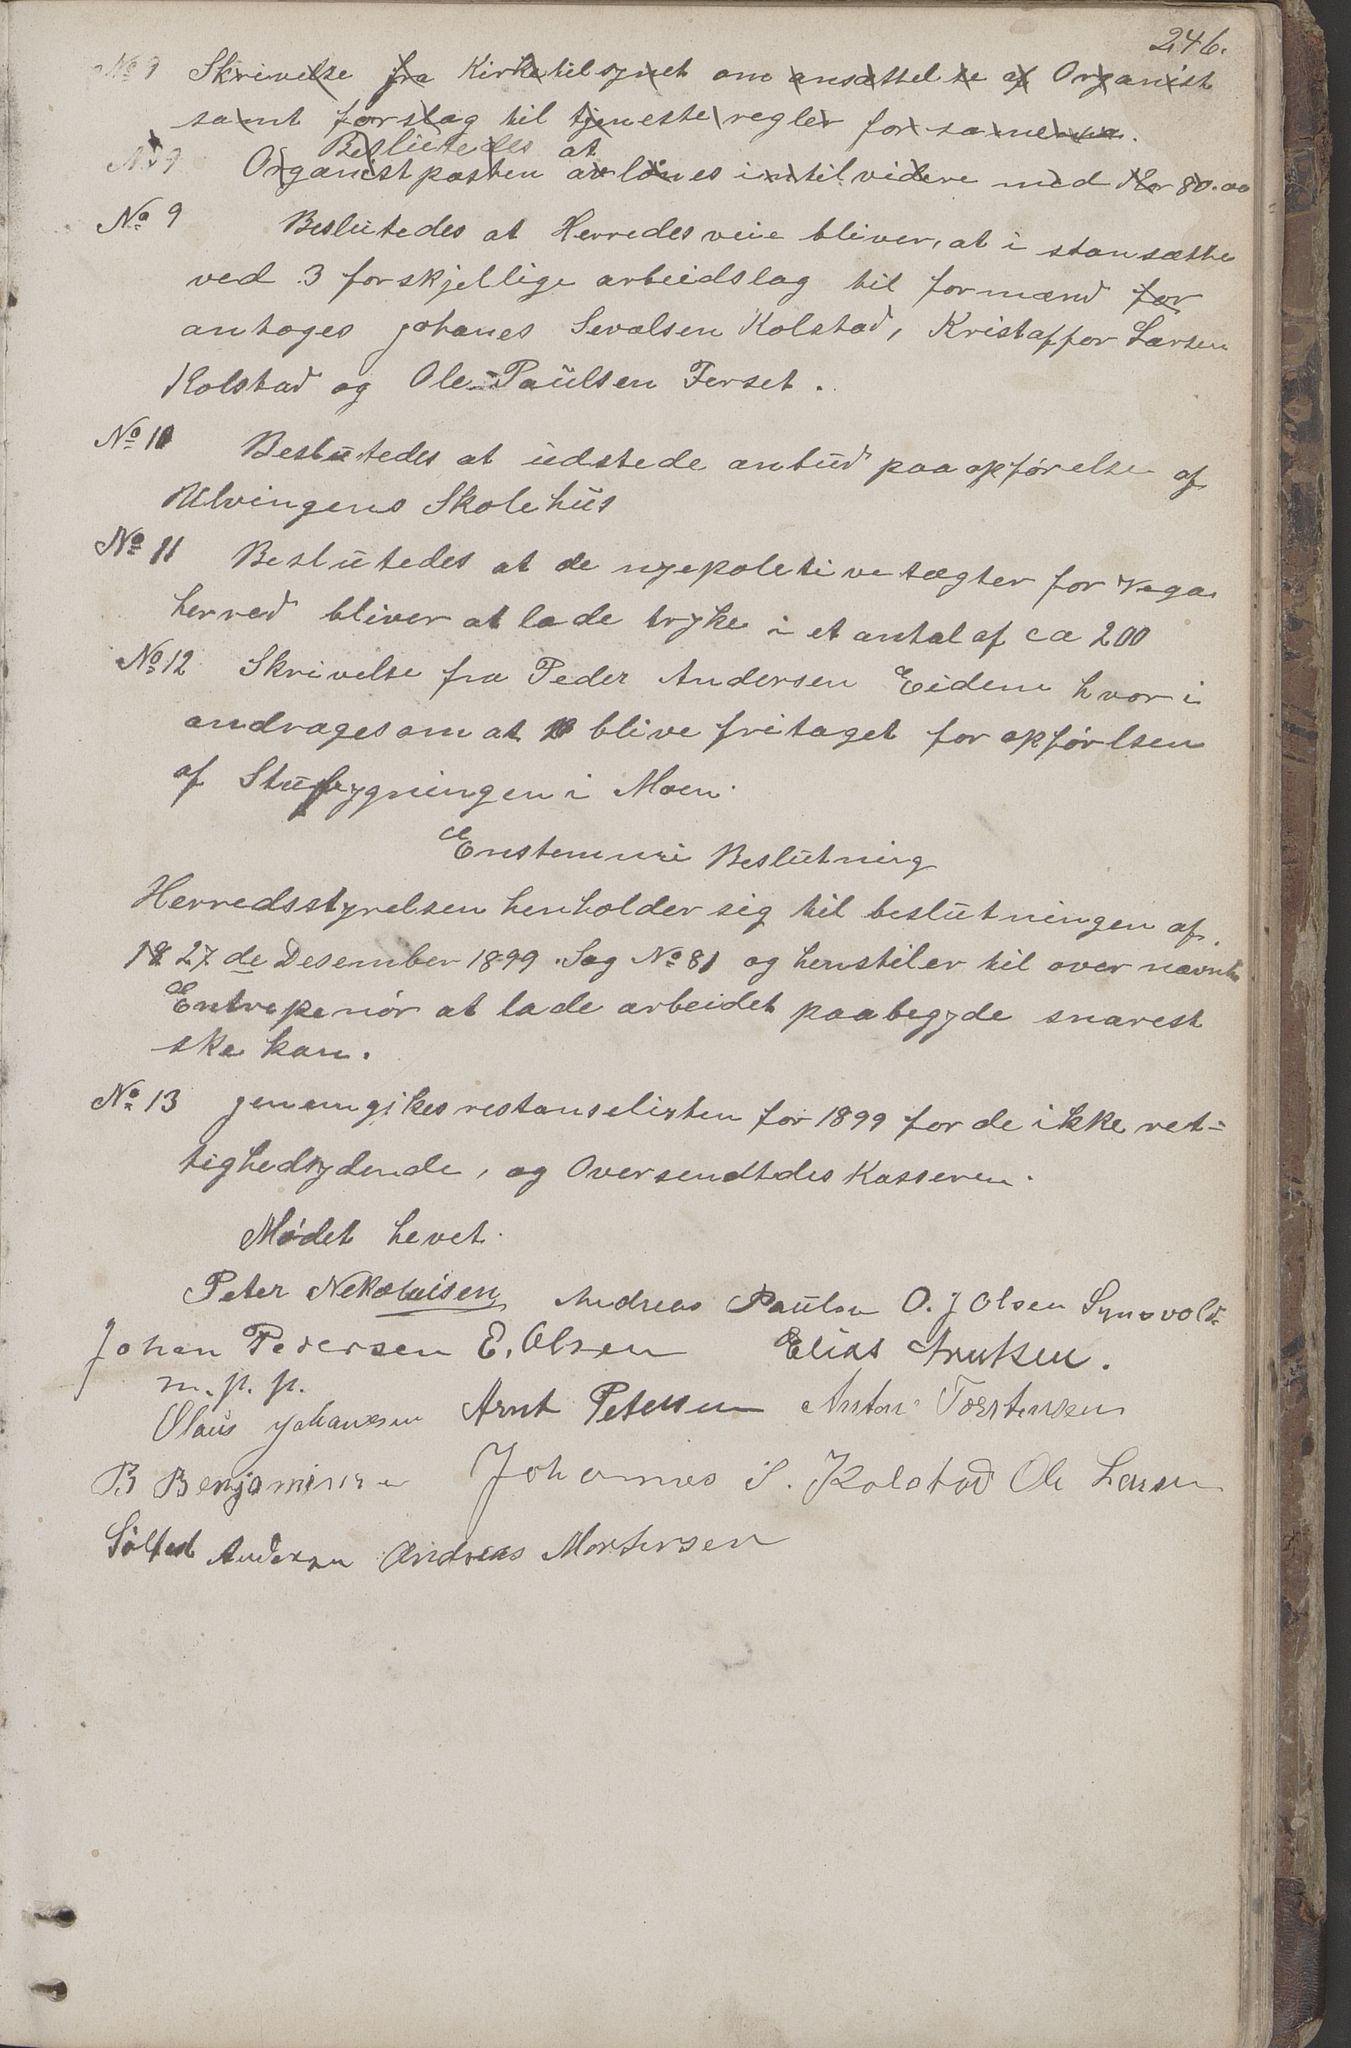 246.
No 9 Skrivelse fra Kirketilsynet om ansættelse af Organist
samt forslag til tjenesteregler for samme
Beslutedes at
No 9 Organistposten avlønes intil videre med Kr 80.00
No 9 Beslutedes at Herredsveie bliver, at i stansætte
ved 3 forskjellige arbeidslag til formænd for
antages Johanes Sevalsen Kolstad, Kristaffor Larsen
Kolstad og Ole Paulsen Ferset.
No 10 Beslutedes at udstede anbud paa opførelse af
Ulvingens Skolehus
No 11 Beslutedes at de nye poletivetægter for Vega
herred bliver at lade tryke i et antal af ca 200
No 12 Skrivelse fra Peder Andersen Eidem hvor i
andrages om at blive fritaget for opførlsen
af Stubygningen i Moen.
Enstemmi Beslutning
Herredsstyrelsen henholder sig til beslutningen af
27de Desember 1899 Sag No 81 og henstiler til over nævnte
Entrepenør at lade arbeidet paabegyde snarest
ske kan.
No 13 jenemgikes restanselisten for 1899 for de ikke ret=
tighedsydende, og Oversendtedes Kasseren.
Mødet hevet.
Peter Nekolaisen Andreas Paulsen O. J Olsen
Johan Pedersen E. Olsen Elias Arntsen.
m. p. p.
Olaus Johansen Arnt Petersen Anton Torstensen
B Benjaminsen Johannes S. Kolstad Ole Larsen
Andersen Andreas Mortensen